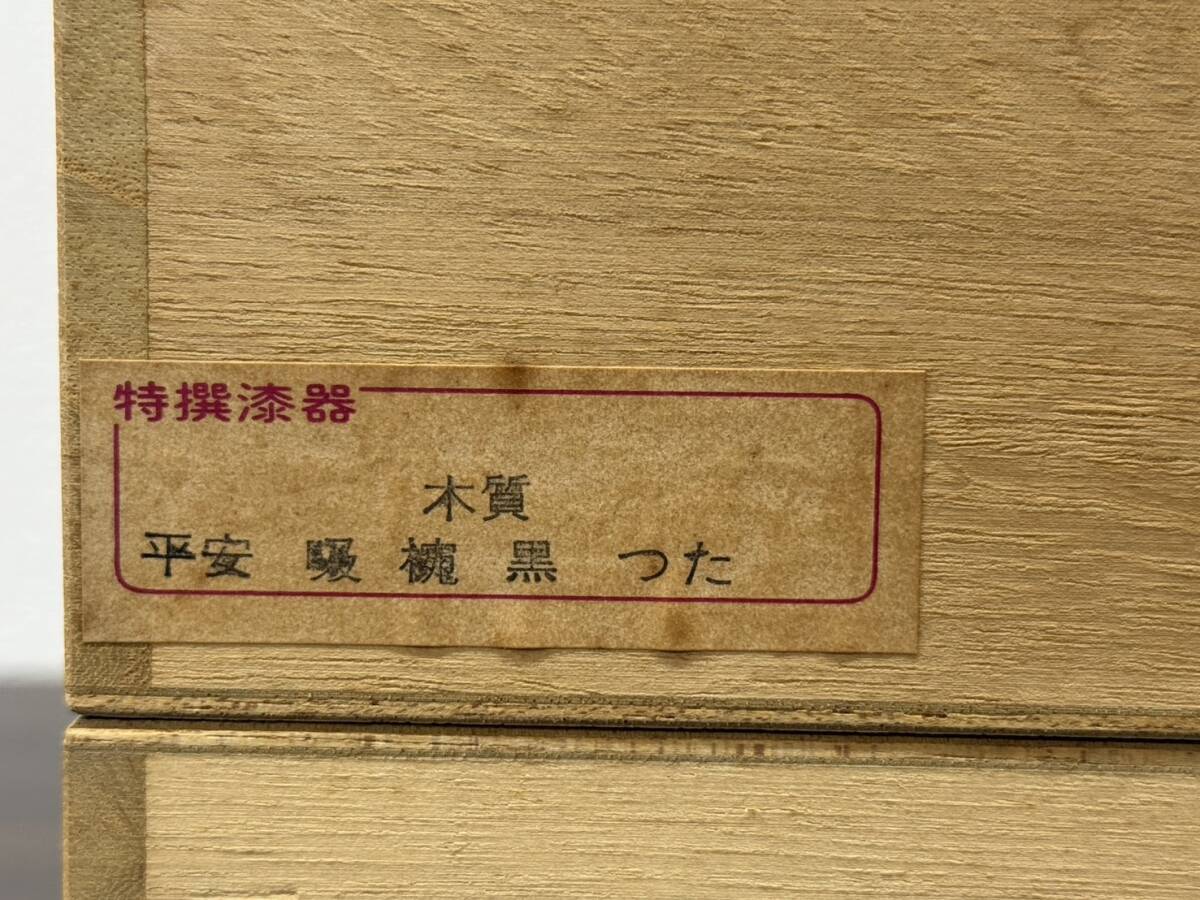 特撰漆器
木質
平安 吸 椀 黒 つた